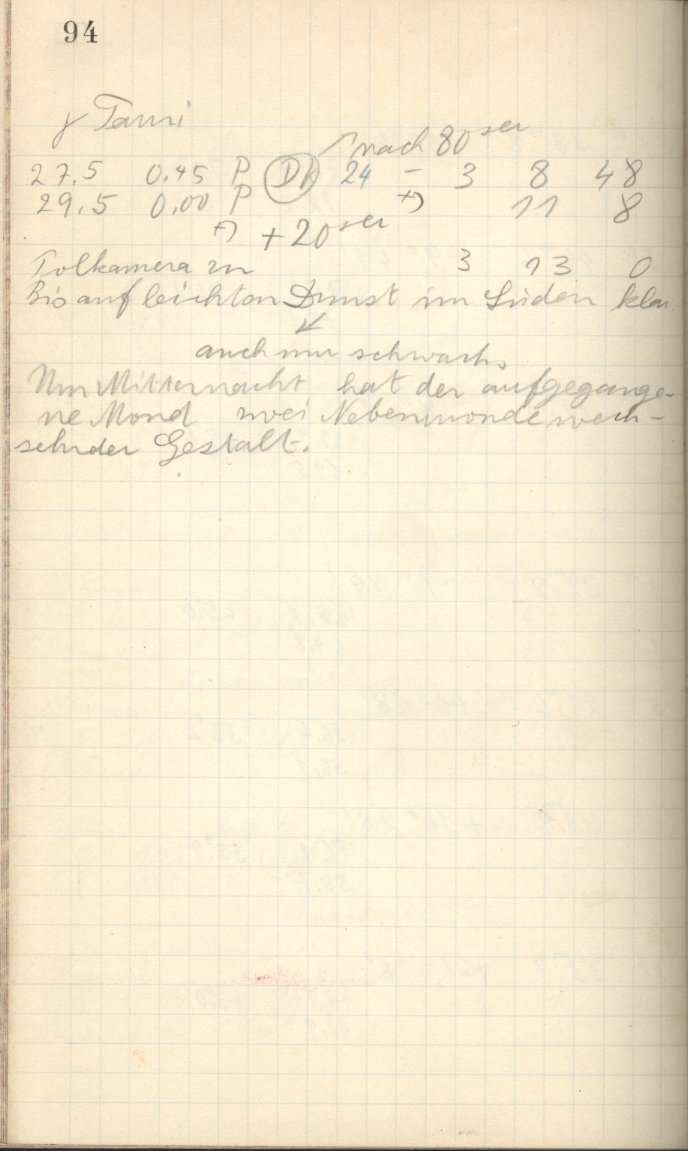 94
γ Tauri
nach 80 sec
27,5 0.45 P DK 24 - 3 8 48
29,5 0.00 P +) 11 8
+) +20 sec
Polkamera zu 3 13 0
Bis auf leichten Dunst im Süden klar
auch nur schwach.
Um Mitternacht hat der aufgegange-
ne Mond zwei Nebenmonde wech-
selnder Gestalt.